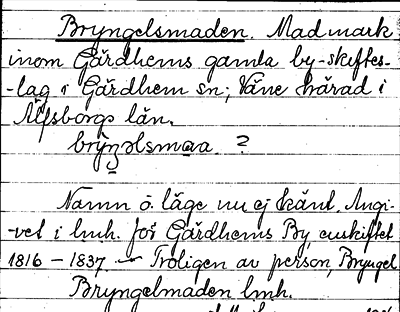 Bryngelsmaden. Madmark
inom Gärdhems gamla by-skiftes-
-lag i Gärdhem sn; Väne härad i
Älfsborgs län.
brŷŋəlsmaa. ?
Namn o. läge nu ej känt. Angi-
-vet i lmh. för Gärdhems By, enskiftet
1816 – 1837. – Troligen av person, Bryngel
Bryngelmaden lmh.